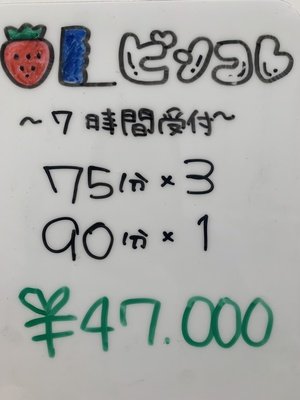 ピンコレ
~7時間受付~
75分×3
90分×1
¥47.000